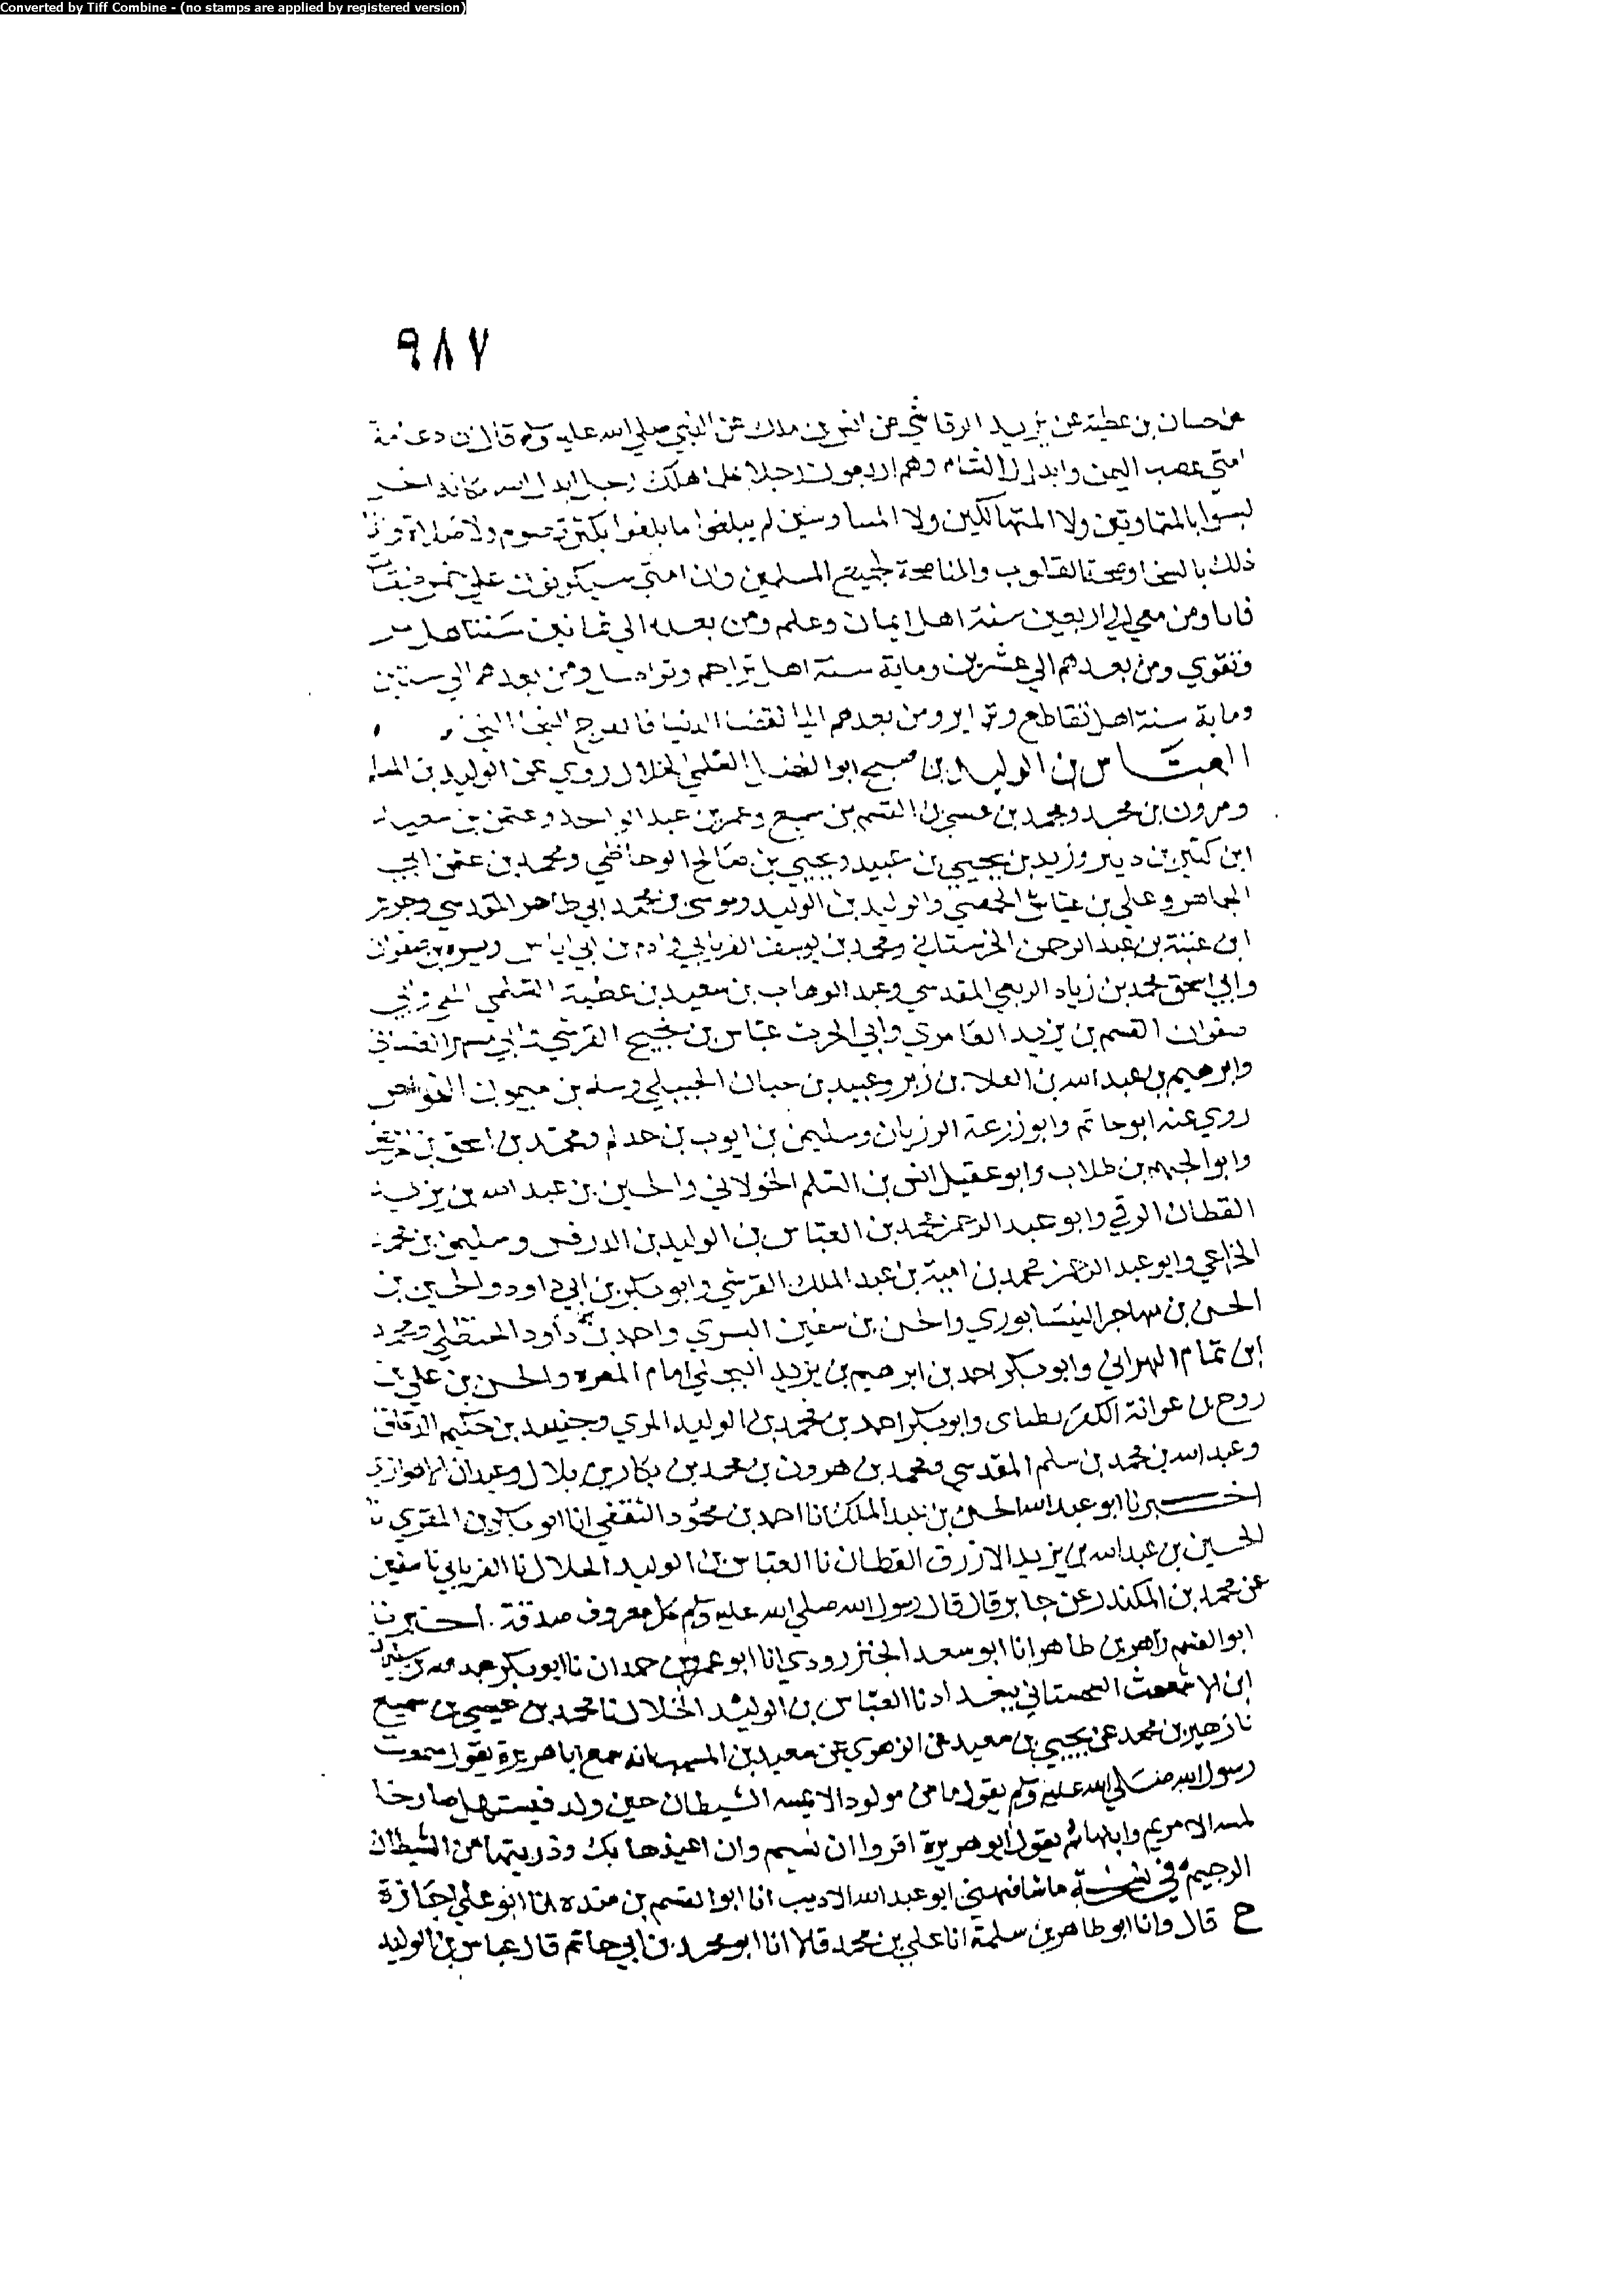 Converted by Tiff Combine - (no stamps are applied by registered version)
٩٨٧
عن حسان بن عطية عن يزيد الرقاشي عن انس بن ملك عن النبي صلي الله عليه وسلم قال ان دعامة
امتي عصب اليمن وابدال الشام وهم اربعون رجلا كلما هلك رجل ابدل الله مكانه اخر
ليسوا بالمتماوتين ولا المتهالكين ولا المتناوشين لم يبلغوا ما بلغوا بكثرة صوم ولا صلاة وانما
ذلك بالسخا وصحة القلوب والمناصحة لجميع المسلمين وان امتي سيكونون علي خمس طبقات
فانا ومن معي الي اربعين سنة اهل ايمان وعلم ومن بعدهم الي ثمانين سنة اهل بر
وتقوي ومن بعدهم الي عشرين وماية سنة اهل تراحم وتواصل ومن بعدهم الي ستين
وماية سنة اهل تقاطع وتدابر ومن بعدهم الي انقضا الدنيا فالهرج النجا النجا
العباس بن الوليد بن صبح ابو الفضل السلمي الخلال روي عن الوليد بن مسلم
ومروان بن محمد ومحمد بن عيسي بن القسم بن سميع وعمر بن عبد الواحد وعثمن بن سعيد
ابن كثير بن دينر وزيد بن يحيي بن عبيد ويحيي بن صالح الوحاظي ومحمد بن عثمن ابي
الجماهر وعلي بن عياش الحمصي والوليد بن الوليد وموسي بن محمد ابي طاهر المقدسي وجرير
ابن عتبة بن عبد الرحمن الحرستاني ومحمد بن يوسف الفريابي وادم بن ابي اياس ويسرة بن صفوان
وابي اسحق محمد بن زياد الربعي المقدسي وعبد الوهاب بن سعيد بن عطية السلمي وابي
صفوان القسم بن يزيد العامري وابي الحرث عباس بن نجيح القرشي وابي مسهر الغساني
وابرهيم بن عبد الله بن العلا بن زبر وعبيد بن حبان الجبيلي وسلمة بن ميمون الخواص
روي عنه ابو حاتم وابو زرعة الرازيان وسليمن بن ايوب بن حذلم ومحمد بن اسحق بن
وابو الجهم بن طلاب وابو عقيل انس بن السلم الخولاني والحسين بن عبد الله بن يزيد
القطان الرقي وابو عبد الرحمن محمد بن العباس بن الوليد بن الدرفس وسليمن بن محمد
الخزاعي وابو عبد الرحمن محمد بن امية بن عبد الملك القرشي وابو بكر بن ابي داود والحسين بن
الحسن بن مهاجر النيسابوري والحسن بن سفين النسوي واحمد بن داود الحنظلي ومحمد
ابن تمام البهراني وابو بكر احمد بن ابرهيم بن يزيد امام المعرة والحسن بن علي بن
روح بن عوانة الكفربطناي وابو بكر احمد بن محمد بن الوليد المري وجنيد بن حكيم الدقاق
وعبد الله بن محمد بن سلم المقدسي ومحمد بن هرون بن محمد بن بكار بن بلال وعبدان الاهوازي
اخبرنا ابو عبد الله الحسين بن عبد الملك انا احمد بن محمود الثقفي انا ابو بكر بن المقري نا
الحسين بن عبد الله بن يزيد الازرق القطان نا العباس بن الوليد الخلال نا الفريابي نا سفين
عن محمد بن المنكدر عن جابر قال قال رسول الله صلي الله عليه وسلم كل معروف صدقة . اخبرنا
ابو القسم زاهر بن طاهر انا ابو سعد الجنزرودي انا ابو عمرو بن حمدان نا ابو بكر عبد الله بن سليمن
ابن الاشعث السجستاني ببغداد نا العباس بن الوليد الخلال نا محمد بن عيسي بن سميع
نا زهير بن محمد عن يحيي بن سعيد عن الزهري عن سعيد بن المسيب انه سمع ابا هريرة يقول سمعت
رسول الله صلي الله عليه وسلم يقول ما من مولود الا يمسه الشيطان حين ولد فيستهل صارخا
لمسه الا مريم وابنها ثم يقول ابو هريرة اقروا ان شيتم وان اعيذها بك وذريتها من الشيطان
الرجيم في نسخة ما شافهني ابو عبد الله الاديب انا ابو القسم بن منده انا ابو علي اجازة
ح قال وانا ابو طاهر بن سلمة انا علي بن محمد قالا انا ابو محمد بن ابي حاتم قال عباس بن الوليد